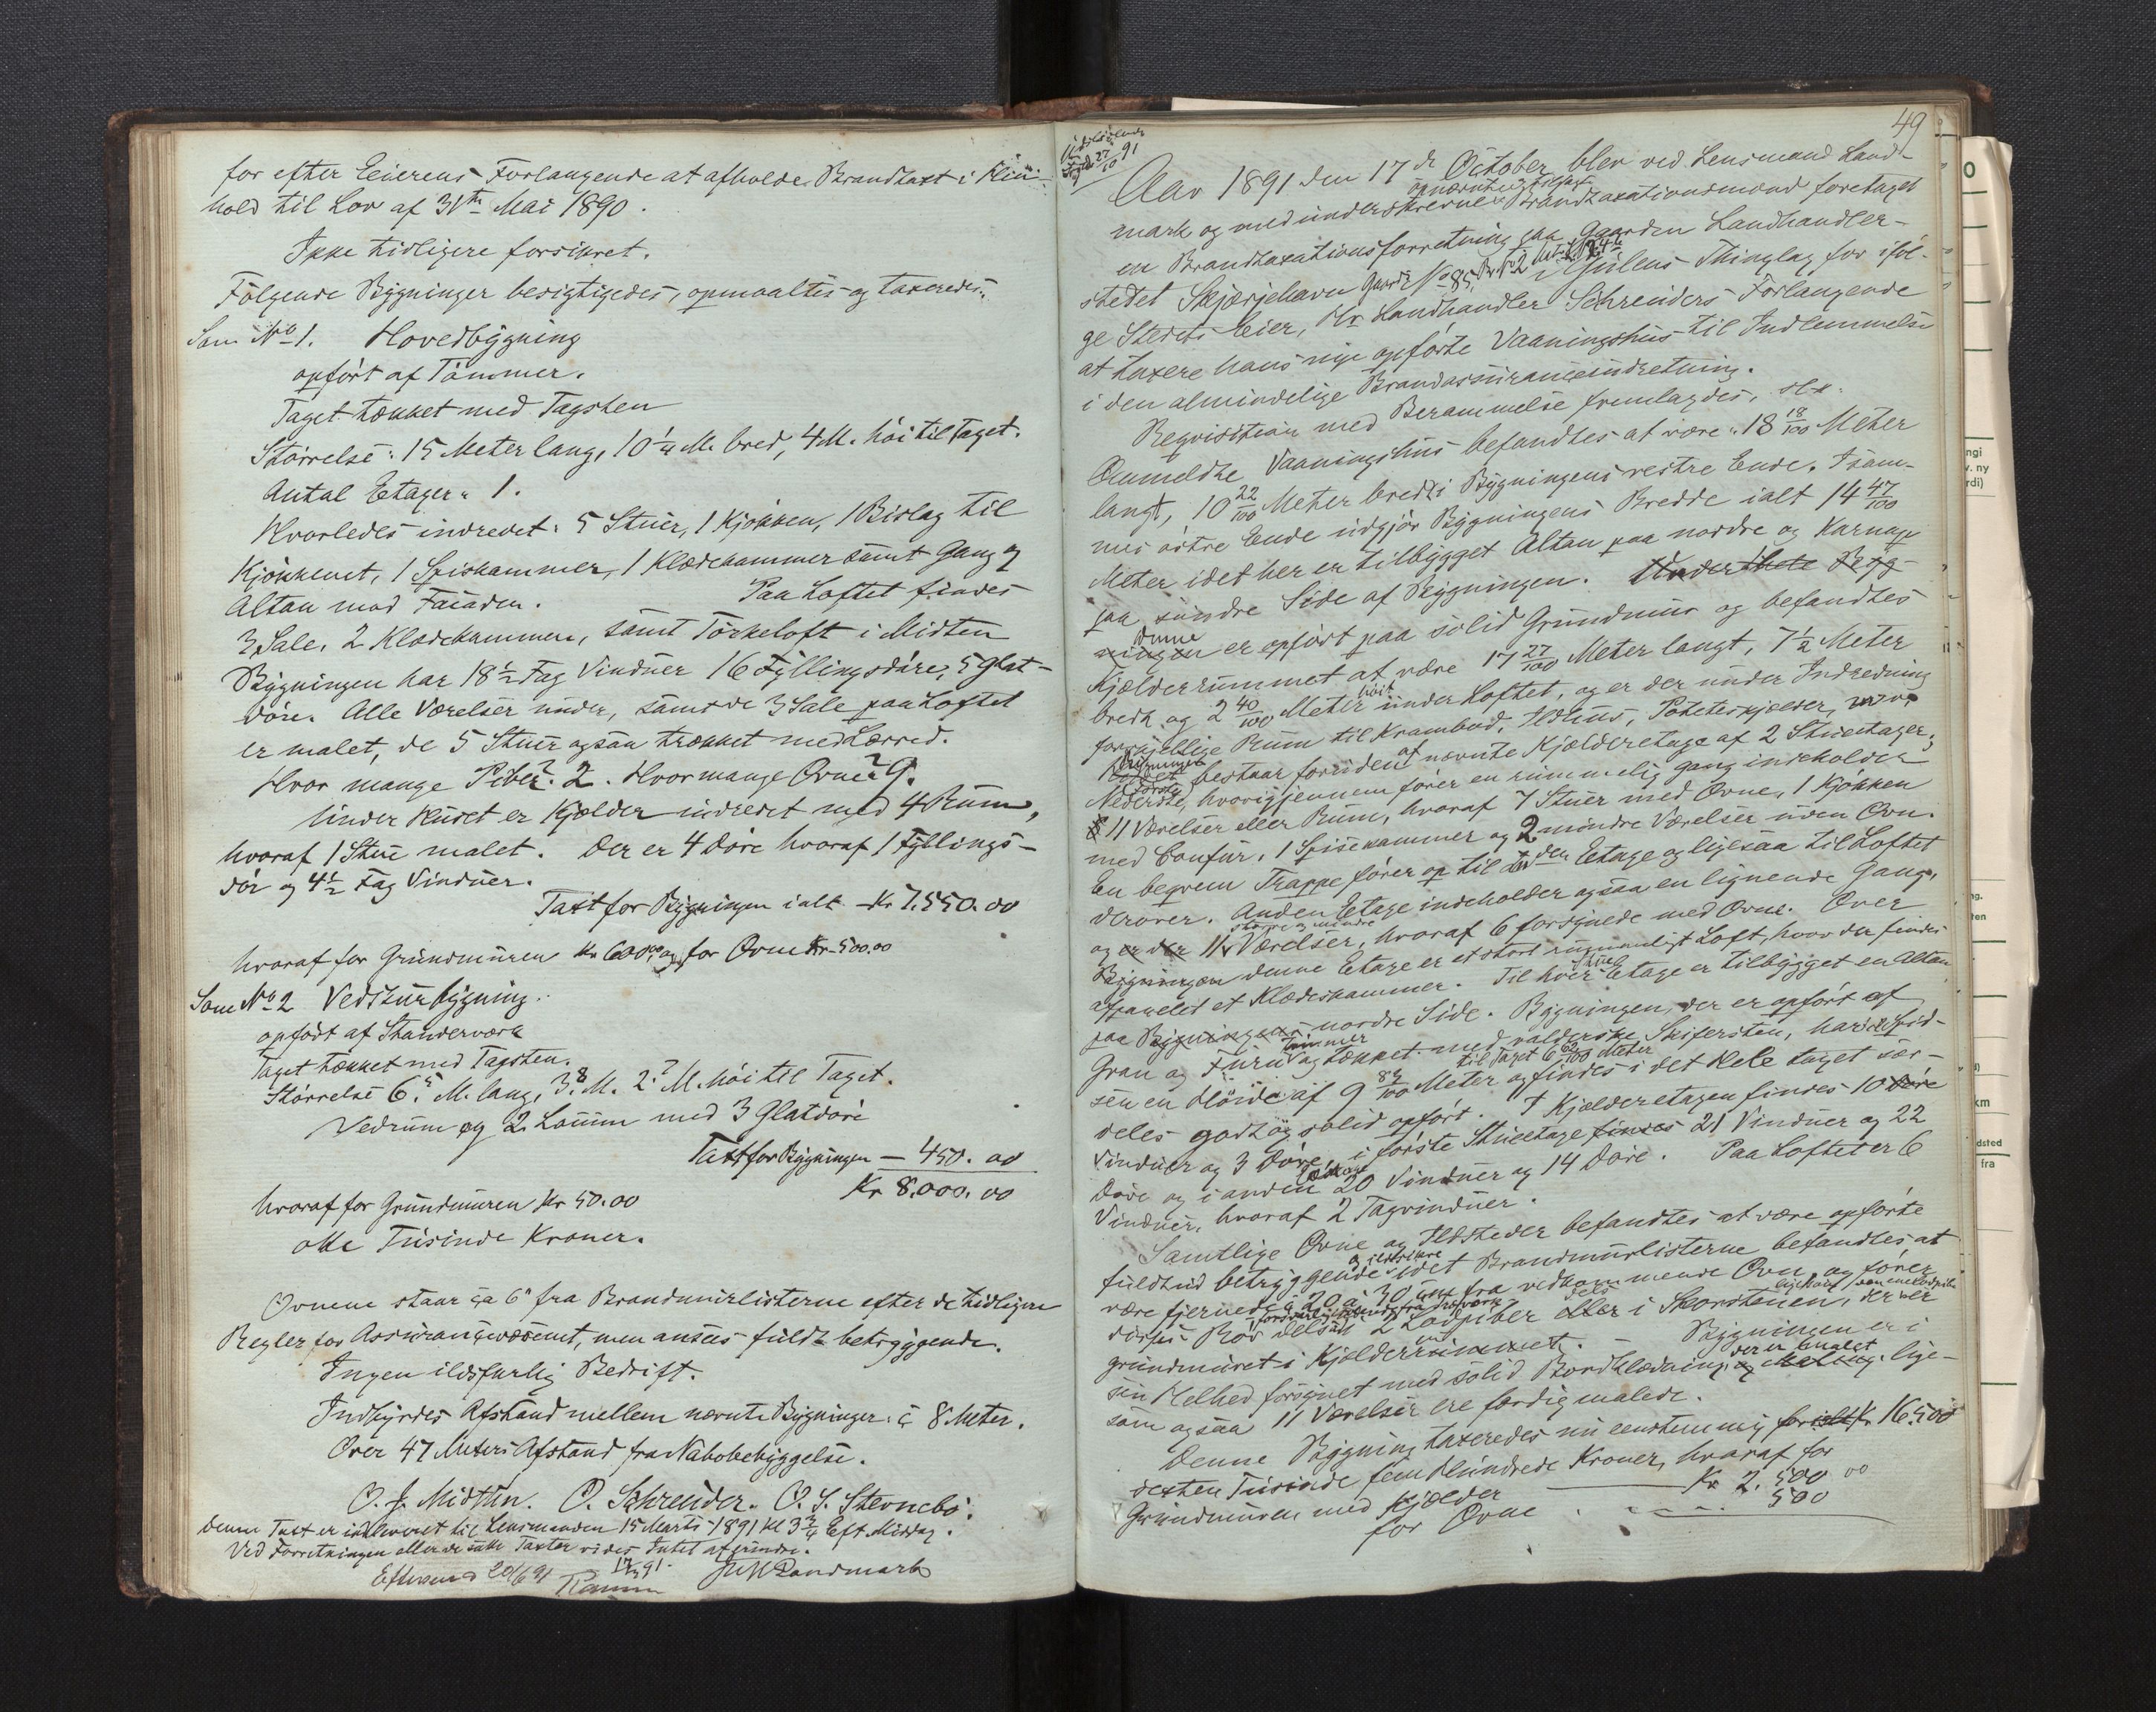 for efter Eierens Forlangende at afholde Brandtaxt i Hen-
hold til Lov af 31te Mai 1890.
Ikke tidligere forsikret.
Følgende Bygninger besigtigedes, opmaaltes og taxeredes:
Som No 1. Hovedbygning
opført af Tømmer.
Taget tækket med Tagsten
Størrelse: 15 Meter lang, 10 1/4 M. bred, 4 M. høi til Taget.
Antal Etager: 1.
Hvorledes indredet: 5 Stuer, 1 Kjøkken, 1 Bislag til
Kjøkkenet, 1 Spiskammer, 1 Klædekammer samt Gang og
Altan mod Facaden. Paa Loftet findes
3 Sale, 2 Klædekammere, samt Tørkeloft i Midten
Bygningen har 18 1/2 Fag Vinduer 16 Fyllingsdøre, 5 glat-
døre. Alle Værelser under, samt de 3 Sale paa Loftet
er malet, de 5 Stuer ogsaa trækket med Lærred.
Hvor mange Piber? 2. Hvor mange Ovne? 9.
Under Huset er Kjælder indredet med 4 Rum,
hvoraf 1 Stue malet. Der er 4 Døre hvoraf 1 Fyllings-
dør og 4 1/2 Fag Vinduer.
Taxt for Bygningen ialt - Kr 7.550.00
hvoraf for Grundmuren Kr 600.00 og for Ovne Kr 500.00
Som No 2 Vedskurbygning:
opført af Standerværk
Taget tækket med Tagsten.
Størrelse 6.5 M. lang, 3.8 M. 2.7 M. høi til Taget.
Vedrum og 2 Lorum med 3 Glatdøre
Taxt for Bygningen - 450.00
Kr 8.000.00
hvoraf for Grundmuren Kr 50.00
otte Tusinde Kroner.
Ovnene staar ca 6" fra Brandmurlisterne efter de tidligere
Regler for Assurancevæsenet, men ansees fuldt betryggende.
Ingen ildsfarlig Bedrift.
Indbyrdes Afstand mellem nævnte Bygninger: ca 8 Meter.
Over 47 Meters Afstand fra Nabobebyggelse.
O. J. Midttun. O. Schreuder. O. S. Stevnebø.
Denne Taxt er indleveret til Lensmanden 15 Marts 1891 Kl 3 3/4 Eft. Middag.
Ved Forretningen eller de satte Taxter vides Intet at erindre.
17/3 91. Landmark
20/6 91
49
27/10 91
Aar 1891 den 17de October blev ved Lensmand Land-
mark og med underskrevne opnævnte Brandtaxationsmænd foretaget
en Brandtaxationsforretning paa Gaarden Landhandler-
stedet Skjærjehavn Gaards No 85, Br. No 2 i Gulens Thinglag for iføl-
ge Stedets Eier, Hr Landhandler Schreuders Forlangende
at taxere hans nye opførte Vaaningshus til Indlemmelse
i den almindelige Brandassuranceindretning.
Reqvisition med Berammelse fremlagdes,
Anmeldte Vaaningshus befandtes at være: 18 18/100 Meter
langt, 10 22/100 Meter bredt i Bygningens vestre Ende. I sam-
mes østre Ende udgjør Bygningens Bredde ialt 14 47/100
Meter idet her er tilbygget Altan paa nordre og Karnap
paa søndre Side af Bygningen. Under dette Byg-
ningen denne er opført paa solid Grundmur og befandtes
Kjælderrummet at være 17 27/100 Meter langt, 7 1/2 Meter
bredt og 2 40/100 Meter høit under Loftet, og er der under Indredning
forskjellige Rum til Krambod, Ildhus, Poteteskjelder, m. v.
Bygningen bestaar foruden af nævnte Kjælderetage af 2 Stueetager;
Nederste, første hvorigjennem fører en rummelig gang indeholder
11 Værelser eller Rum, hvoraf 7 Stuer med Ovne, 1 Kjøkken
med Comfur, 1 Spisekammer og 2 mindre Værelser uden Ovn.
En beqvem Trappe fører op til anden Etage og ligesaa til Loftet
derover. Anden Etage indeholder ogsaa en lignende Gang,
og er der 11 større og mindre Værelser, hvoraf 6 forsynede med Ovne. Over
Bygningen denne Etage er et stort rummeligt Loft, hvor der findes
afpanelet et Klædeskammer. Til hver Stue Etage er tilbygget en Altan
paa Bygningens nordre Side. Bygningen, der er opført af
Gran og Furu Tømmer og tækket med valderske Skifersten, har i Spid-
sen en Høide af 9 89/100 Meter til Taget 6 62/100 Meter og findes i det Hele taget sær-
deles godt og solid opført. I Kjælderetagen findes 10 Døre
Vinduer og 3 Døre, i første Stueetage findes 21 Vinduer og 22
Døre og i anden Etage 20 Vinduer og 14 Døre. Paa Loftet er 6
Vinduer, hvoraf 2 Tagvinduer.
Samtlige Ovne og Ildsteder befandtes at være opførte
fuldtud betryggende og ildsikre idet Brandmurlisterne befandtes at
være fjernede 20 à 30 cm fra vedkommende Ovn, og fører
disses Rør dels 2 Lodpiber i Skorstenen, der er
grundmuret i Kjælderrummet. Bygningen er i
sin Helhed forsynet med solid Bordklædning, der er malet og Maling, lige-
som ogsaa 11 Værelser ere færdig malede.
Denne Bygning taxeredes nu eenstemmig for ialt Kr 16.500
sexten Tusinde fem Hundrede Kroner, hvoraf for
Grundmuren med Kjælder Kr 2.500 00
for Ovne 500